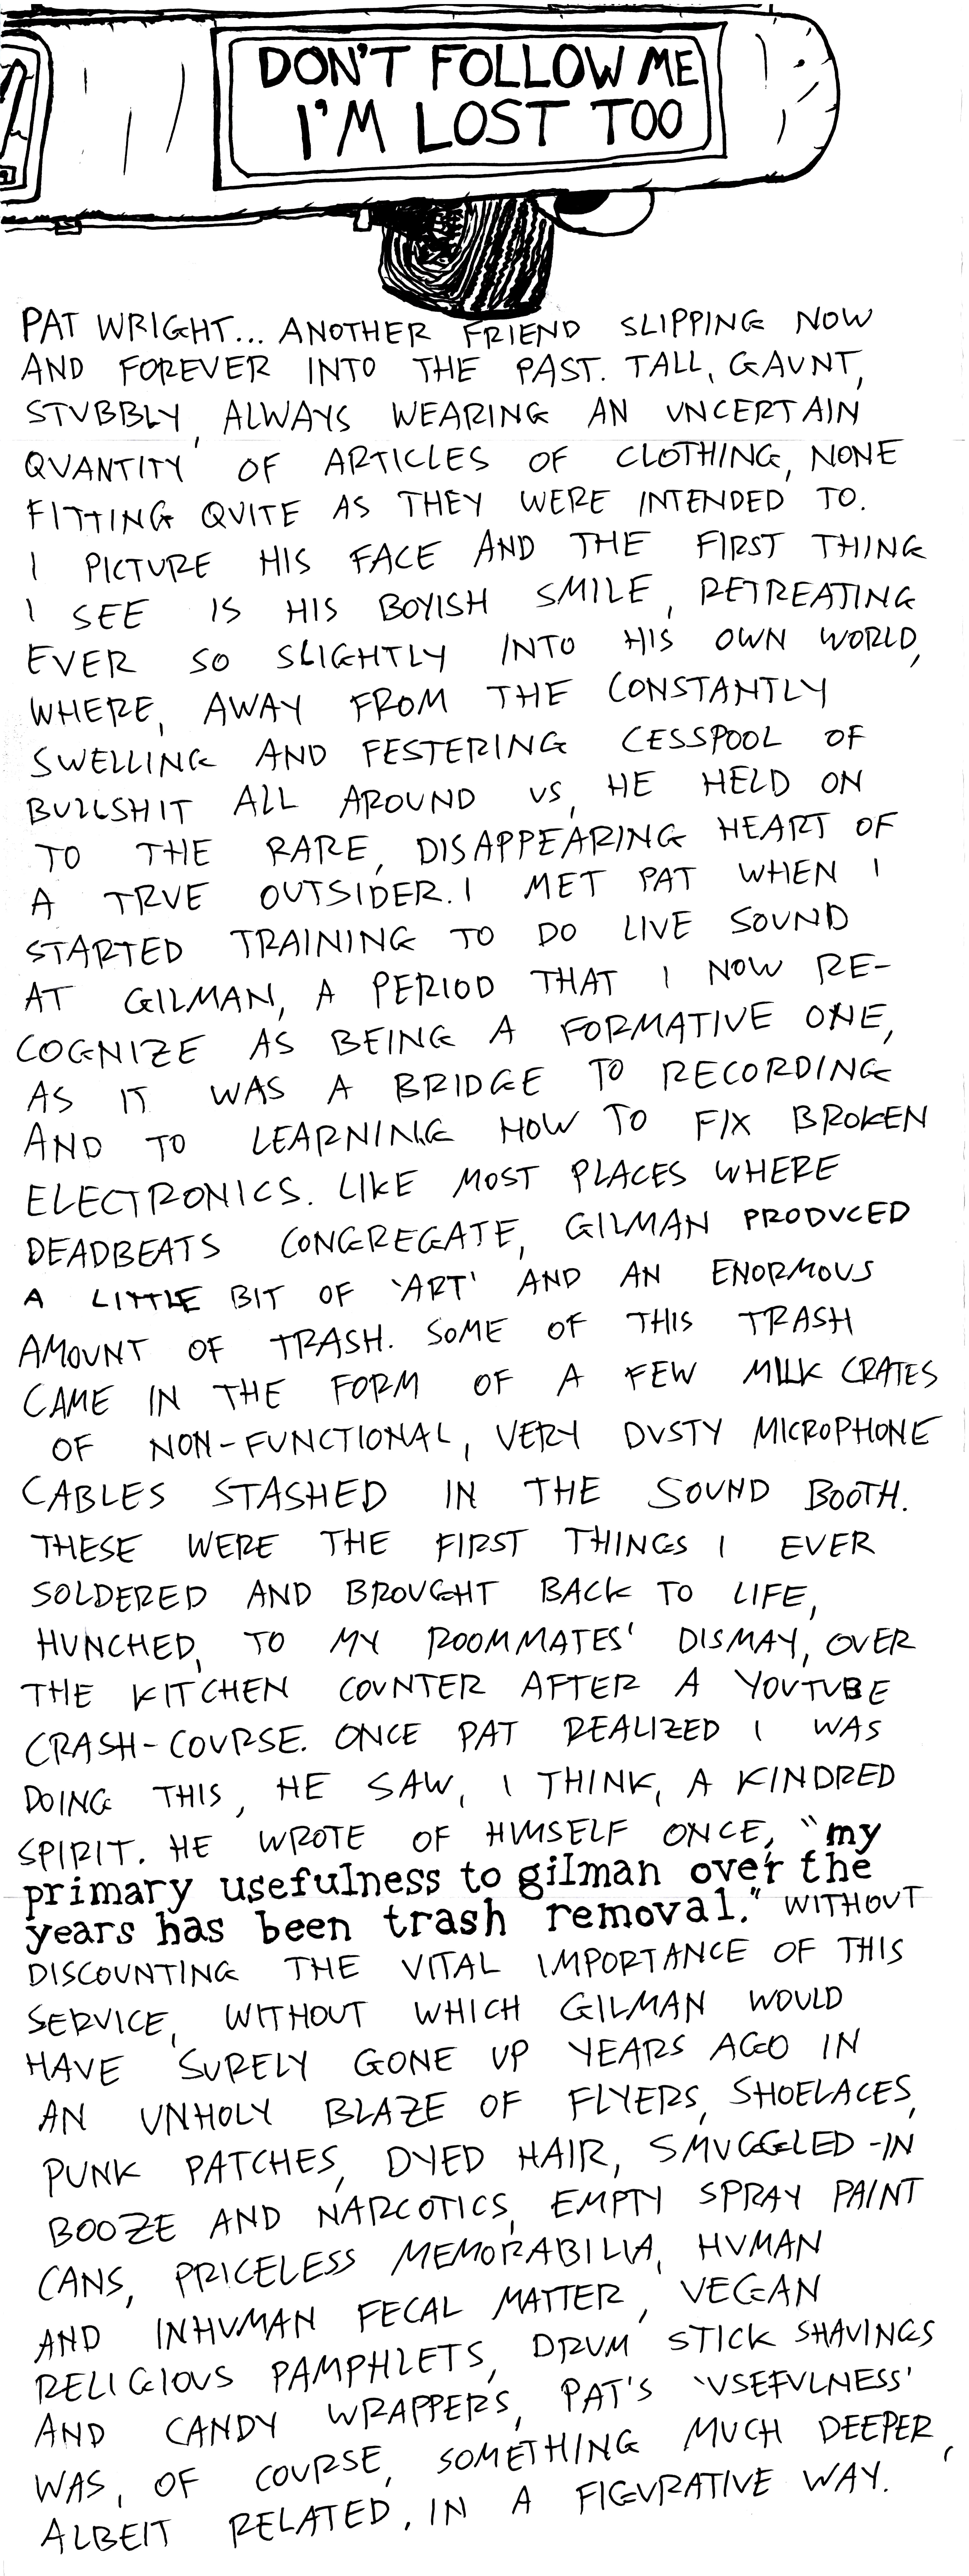 DON'T FOLLOW ME
I'M LOST TOO
PAT WRIGHT... ANOTHER FRIEND SLIPPING NOW
AND FOREVER INTO THE PAST. TALL, GAUNT,
STUBBLY, ALWAYS WEARING AN UNCERTAIN
QUANTITY OF ARTICLES OF CLOTHING, NONE
FITTING QUITE AS THEY WERE INTENDED TO.
I PICTURE HIS FACE AND THE FIRST THING
I SEE IS HIS BOYISH SMILE, RETREATING
EVER SO SLIGHTLY INTO HIS OWN WORLD,
WHERE, AWAY FROM THE CONSTANTLY
SWELLING AND FESTERING CESSPOOL OF
BULLSHIT ALL AROUND US, HE HELD ON
TO THE RARE, DISAPPEARING HEART OF
A TRUE OUTSIDER. I MET PAT WHEN I
STARTED TRAINING TO DO LIVE SOUND
AT GILMAN, A PERIOD THAT I NOW RE-
COGNIZE AS BEING A FORMATIVE ONE,
AS IT WAS A BRIDGE TO RECORDING
AND TO LEARNING HOW TO FIX BROKEN
ELECTRONICS. LIKE MOST PLACES WHERE
DEADBEATS CONGREGATE, GILMAN PRODUCED
A LITTLE BIT OF 'ART' AND AN ENORMOUS
AMOUNT OF TRASH. SOME OF THIS TRASH
CAME IN THE FORM OF A FEW MILK CRATES
OF NON-FUNCTIONAL, VERY DUSTY MICROPHONE
CABLES STASHED IN THE SOUND BOOTH.
THESE WERE THE FIRST THINGS I EVER
SOLDERED AND BROUGHT BACK TO LIFE,
HUNCHED, TO MY ROOMMATES' DISMAY, OVER
THE KITCHEN COUNTER AFTER A YOUTUBE
CRASH-COURSE. ONCE PAT REALIZED I WAS
DOING THIS, HE SAW, I THINK, A KINDRED
SPIRIT. HE WROTE OF HIMSELF ONCE, "my
primary usefulness to gilman over the
years has been trash removal." WITHOUT
DISCOUNTING THE VITAL IMPORTANCE OF THIS
SERVICE, WITHOUT WHICH GILMAN WOULD
HAVE SURELY GONE UP YEARS AGO IN
AN UNHOLY BLAZE OF FLYERS, SHOELACES,
PUNK PATCHES, DYED HAIR, SMUGGLED-IN
BOOZE AND NARCOTICS, EMPTY SPRAY PAINT
CANS, PRICELESS MEMORABILIA, HUMAN
AND INHUMAN FECAL MATTER, VEGAN
RELIGIOUS PAMPHLETS, DRUM STICK SHAVINGS
AND CANDY WRAPPERS, PAT'S 'USEFULNESS'
WAS, OF COURSE, SOMETHING MUCH DEEPER,
ALBEIT RELATED, IN A FIGURATIVE WAY.